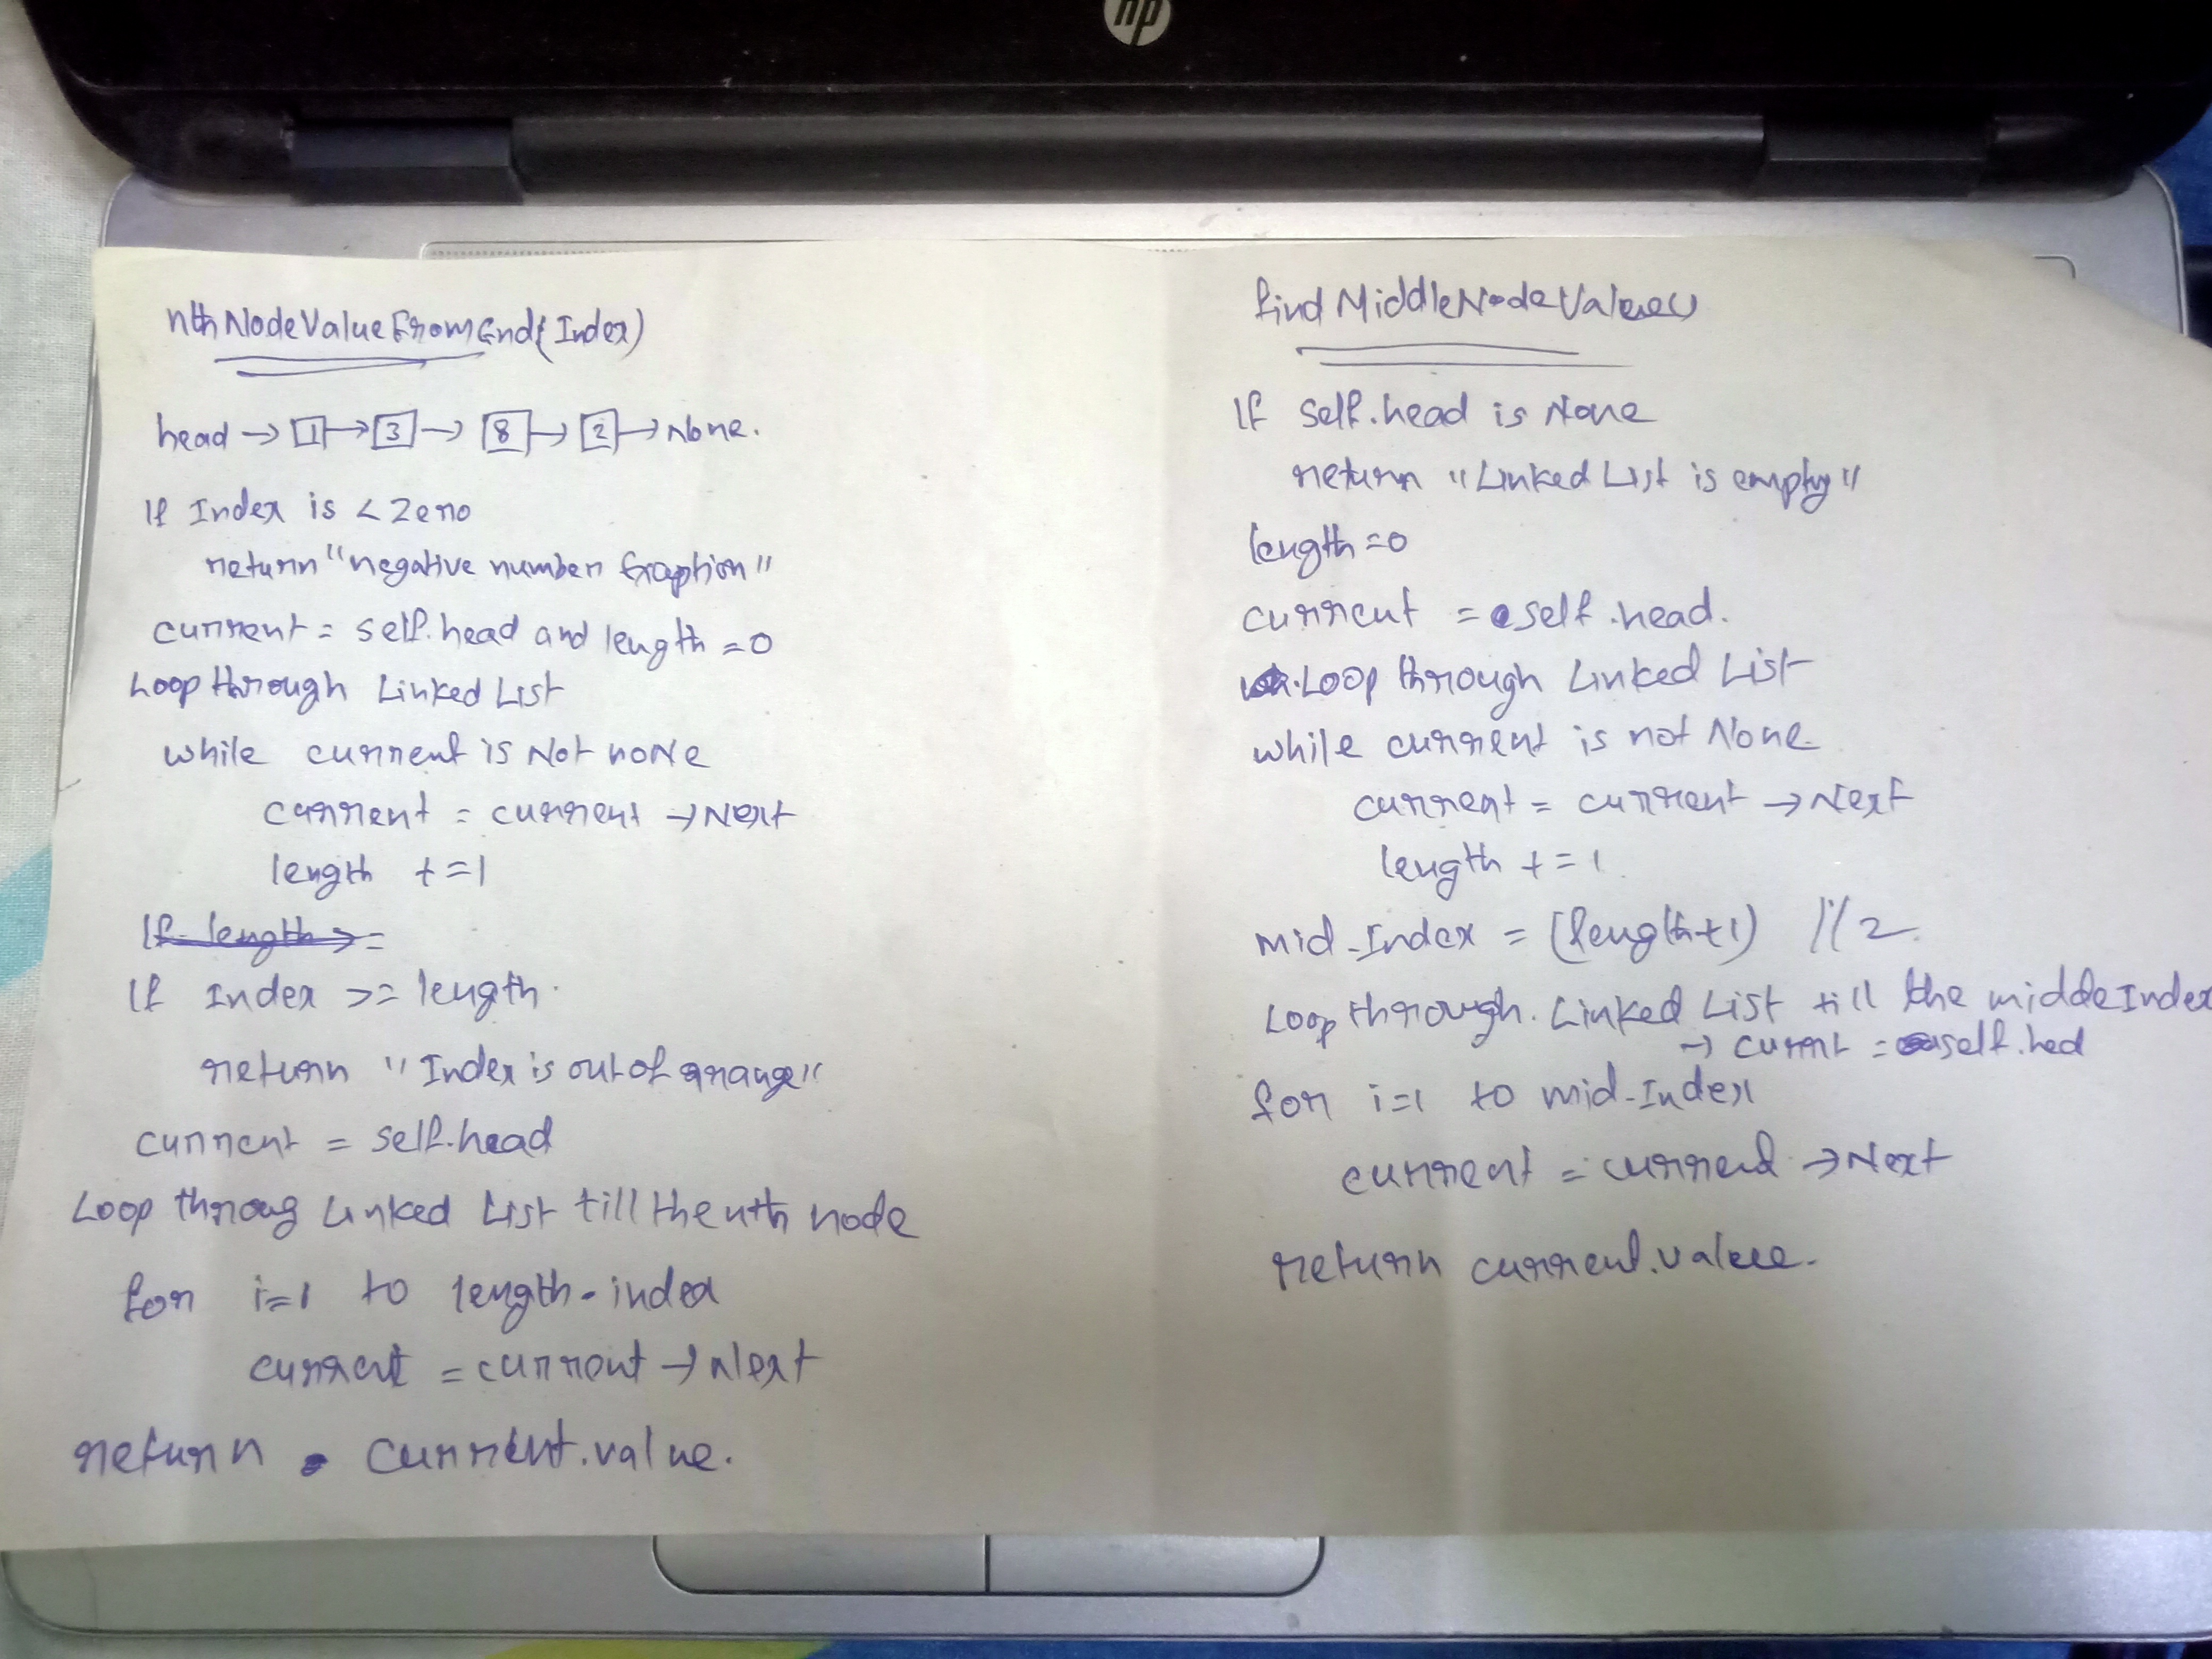 hp
nthNodeValueFromEnd(Index)
head → 1 → 3 → 8 → 2 → None.
If Index is < Zero
return "negative number Exaption"
current = self.head and length = 0
Loop through Linked List
while current is Not noNe
current = current → Next
length += 1
If length >=
If Index >= length.
return "Index is out of range"
current = self.head
Loop throug Linked List till the nth node
for i=1 to length - index
current = current → Next
return current.value.
find MiddleNodeValue()
If self.head is None
return "Linked List is empty"
length = 0
current = self.head.
Loop through Linked List
while current is not None.
current = current → Next
length += 1.
mid-Index = (length+1) // 2.
Loop through. Linked List till the midde Index
→ current = self.hed
for i=1 to mid-Index
current = current → Next
return current.value.